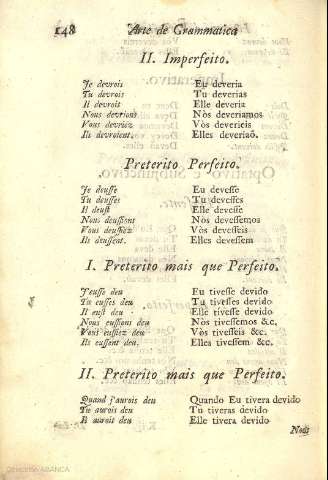 148 Arte de Grammatica
II. Imperfeito.
Je devrois Eu deveria
Tu devrois Tu deverias
Il devroit Elle deveria
Nous devrions Nòs deveriamos
Vous devriez Vòs deverieis
Ils devroient. Elles deveriaõ.
Preterito Perfeito.
Je deusse Eu devesse
Tu deusses Tu devesses
Il deust Elle devesse
Nous deussions Nòs devessemos
Vous deussiez Vòs devesseis
Ils deussent. Elles devessem
I. Preterito mais que Perfeito.
J'eusse deu Eu tivesse devido
Tu eusses deu Tu tivesses devido
Il eust deu Elle tivesse devido
Nous eussions deu Nòs tivessemos &c.
Vous eussiez deu Vòs tivesseis &c.
Ils eussent deu. Elles tivessem &c.
II. Preterito mais que Perfeito.
Quand j'aurois deu Quando Eu tivera devido
Tu aurois deu Tu tiveras devido
Il auroit deu Elle tivera devido
Nous
Colección ABANCA